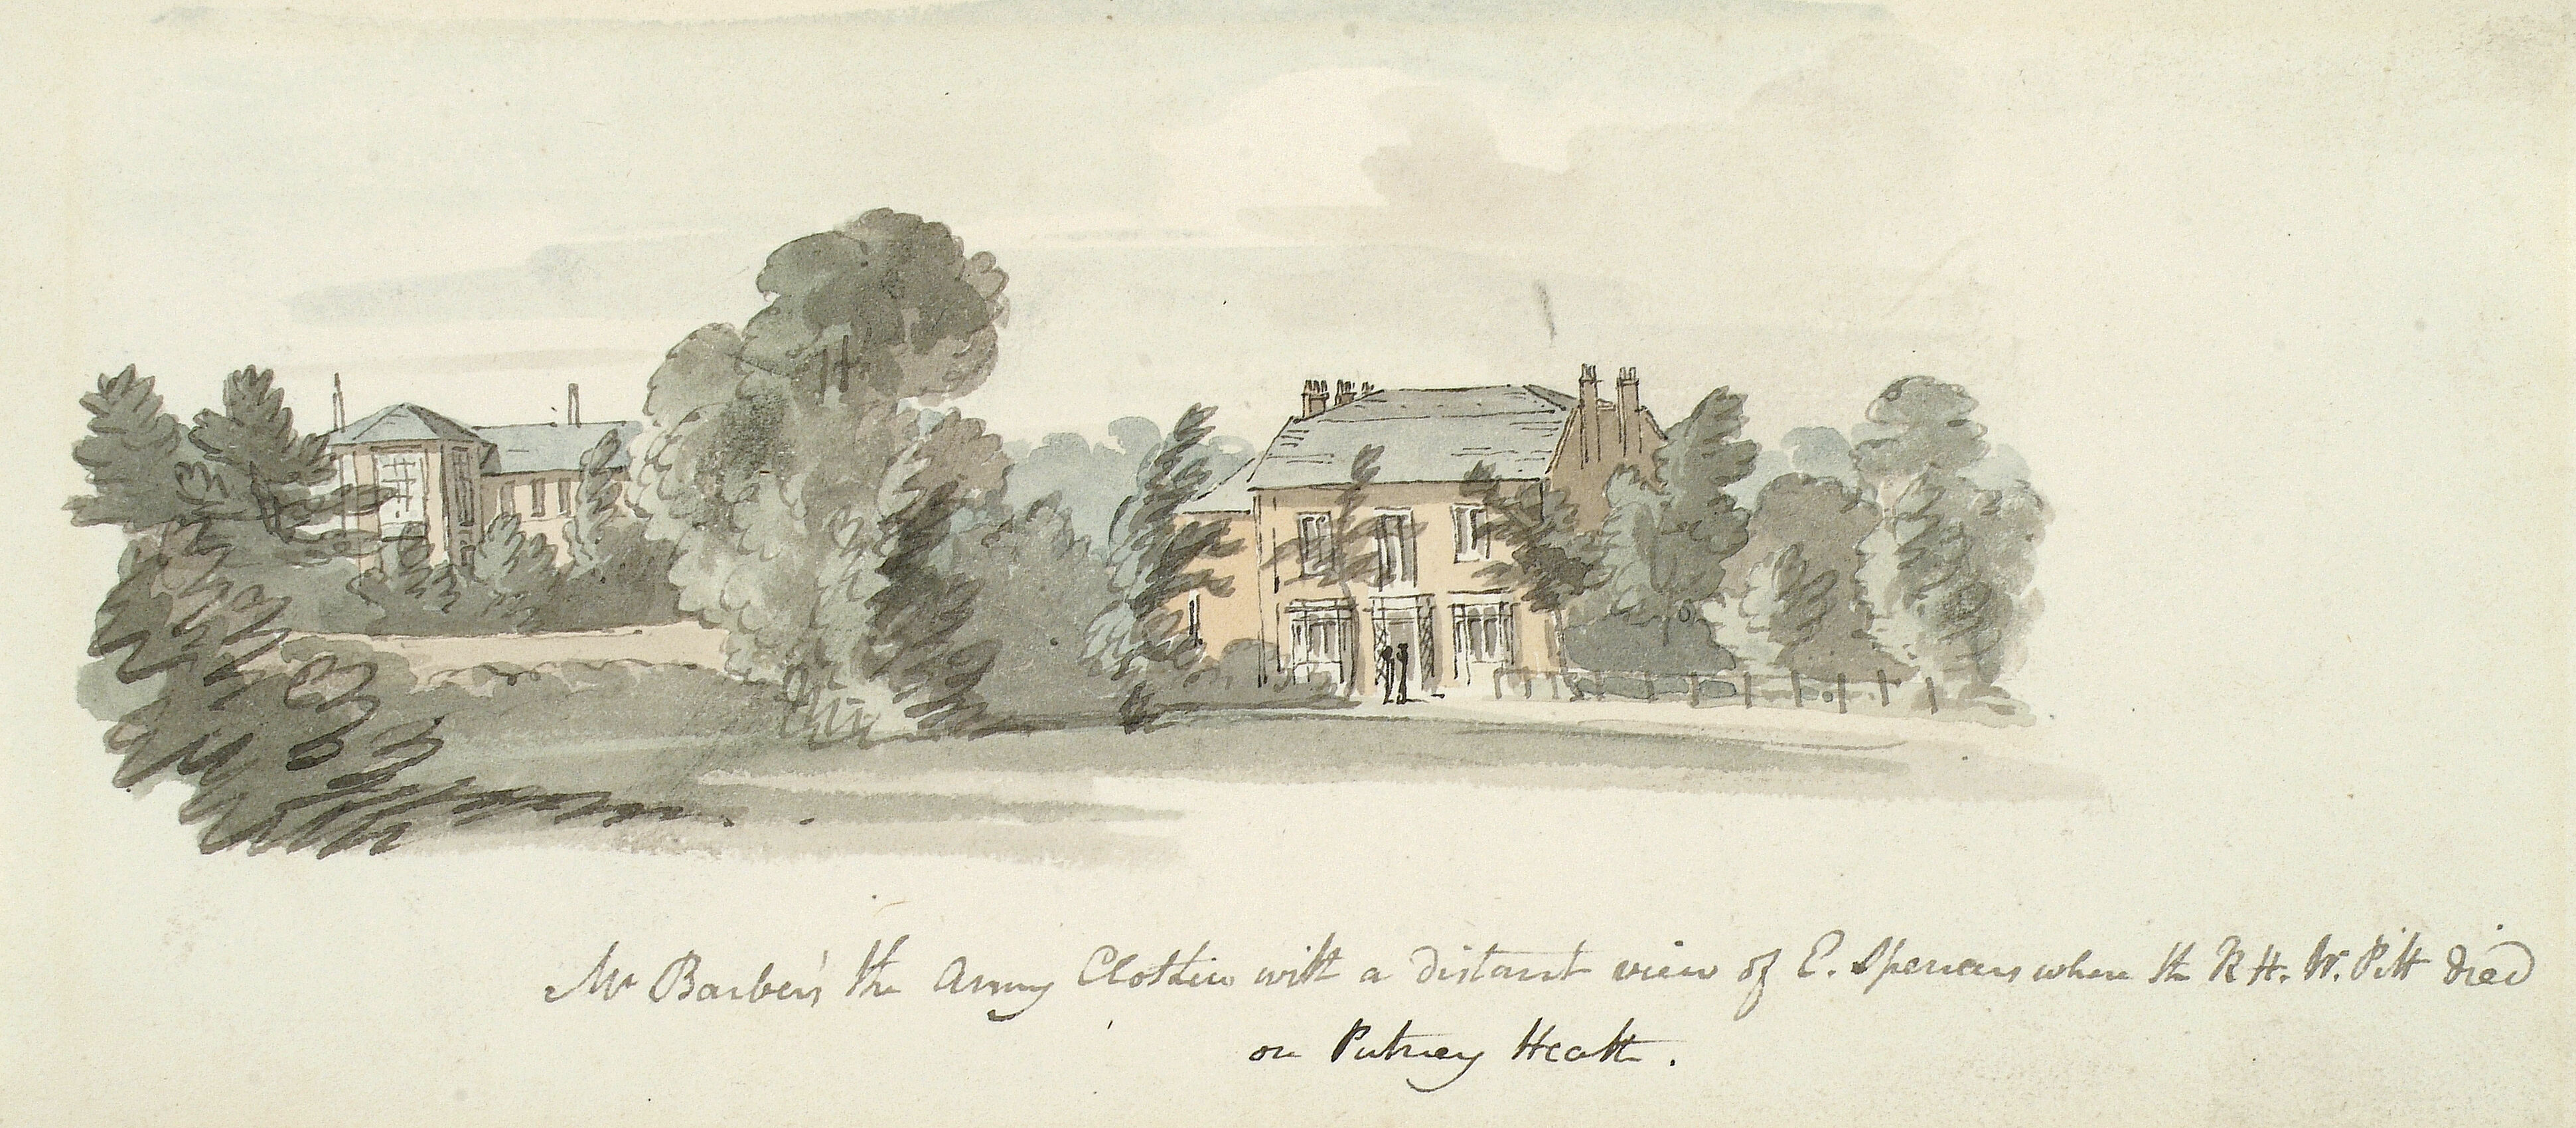 Mr Barber's the Army Clothier with a distant view of E. Spencers where the R H. W. Pitt died
on Putney Heath.